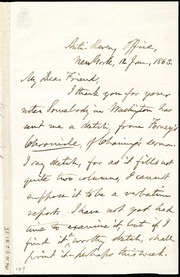 Anti-Slavery Office,
New York, 12 Jan., 1863.
My Dear Friend,
I thank you for your
notes. Somebody in Washington has
sent me a sketch, from Forney's
Chronicle, of Channing's sermon.
I say sketch, for as it fills not
quite two columns, I cannot
suppose it to be a verbatim
report. I have not yet had
time to examine it, but if I
find it worthy sketch, shall
print it perhaps this week.